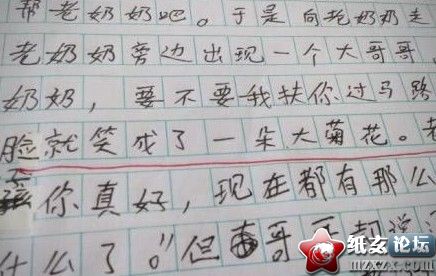 帮老奶奶吧。于是向老奶奶走
老奶奶旁边出现一个大哥哥
奶奶，要不要我扶你过马路
脸就笑成了一朵大菊花。老
孩你真好，现在都有那么
什么了。”但
哥哥却说
纸玄论坛
mzxzx.com